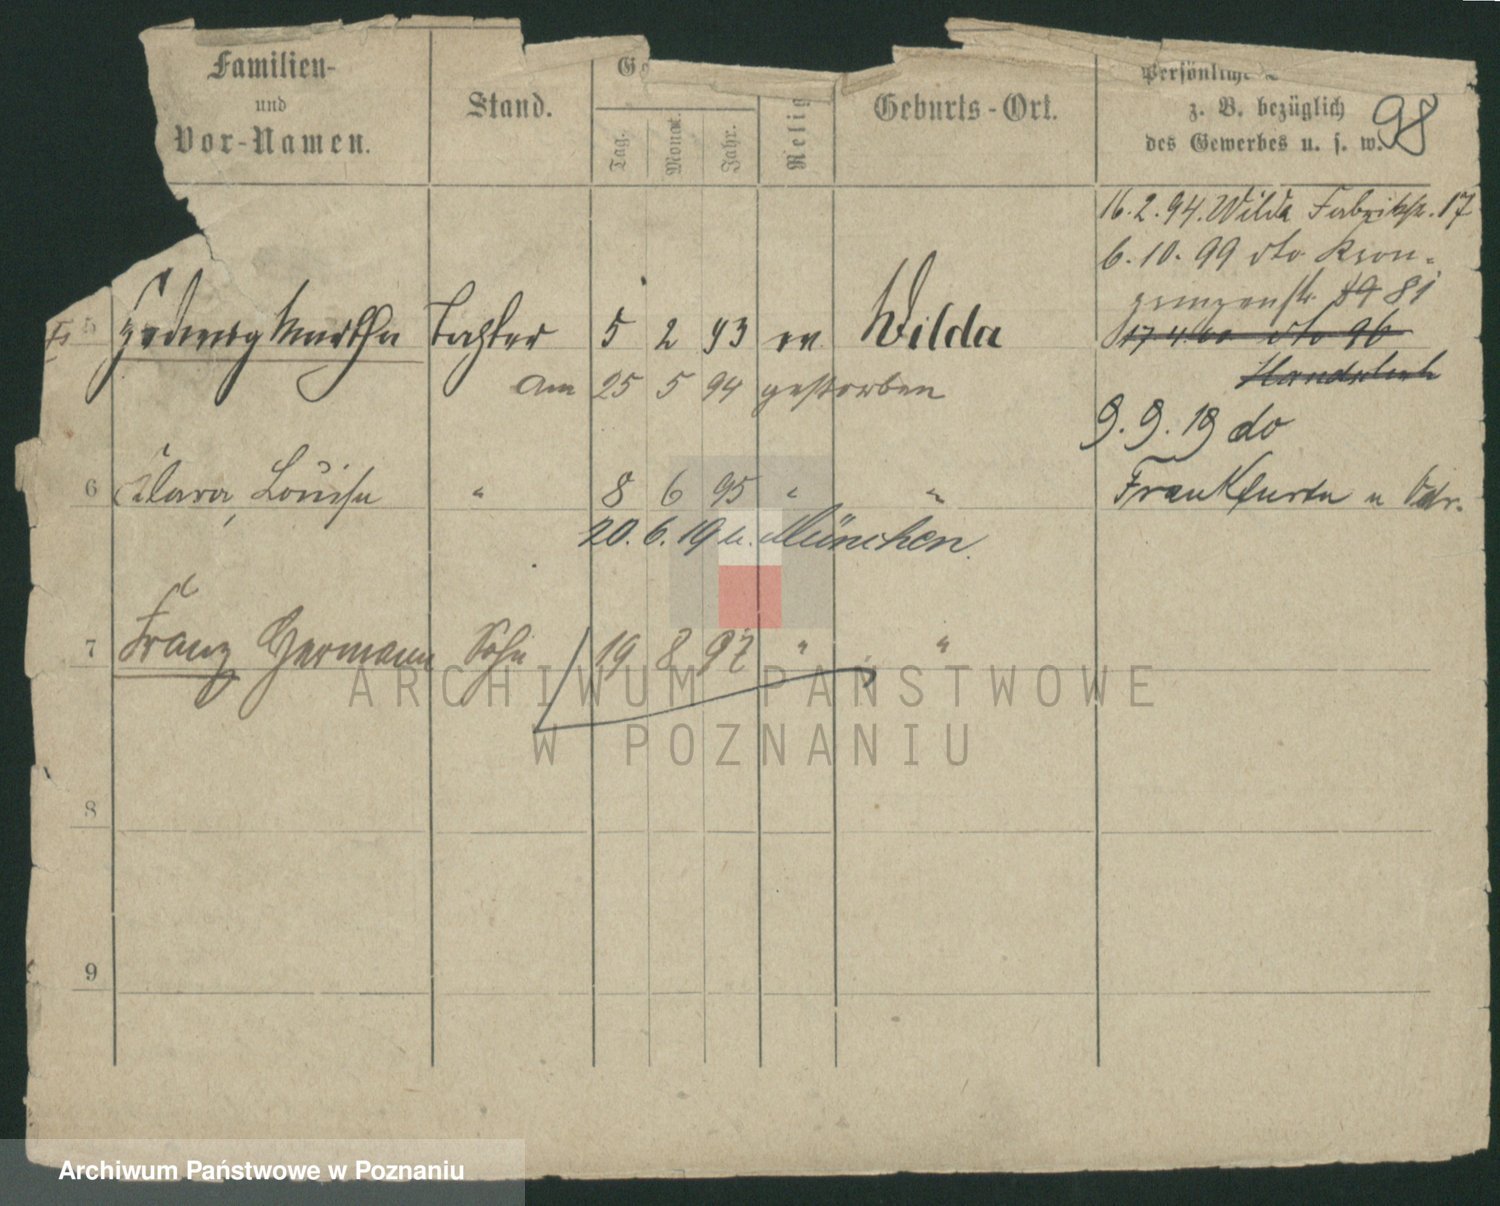 Familien-
und
Vor-Namen.
Stand.
Tag.
Monat.
Jahr.
Relig
Geburts-Ort.
Persönliche
z. B. bezüglich
des Gewerbes u. s. w.
98
16.2.94. Wilda Fabrikstr. 17
6.10.99 dto Kron-
prinzenstr. 81
5 Hedwig Martha Tochter 5 2 93 ev Wilda
17 4 dto 96
am 25 5 94 gestorben
9.9.19 do
Frankfurt a Oder.
6 Clara, Louise " 8 6 95 " "
20.6.19 n. München.
7 Franz Hermann Sohn 19 8 97 " "
8
9
ARCHIWUM PAŃSTWOWE
W POZNANIU
Archiwum Państwowe w Poznaniu